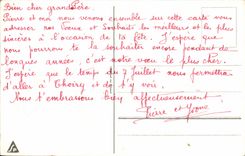 Bien cher grand Père
Pierre et moi nous venons ensemble sur cette carte vous
adresser nos Voeux et Souhaits les meilleurs et les plus
sincères à l'occasion de ta fête. J'espère que
nous pourrons te la souhaiter encore pendant de
longues années, c'est notre voeu le plus cher.
J'espère que le temps du 7 Juillet nous permettra
d'aller à Thoiry et de t'y voir.
Nous t'embrassons bien affectueusement.
Pierre et Yvonne